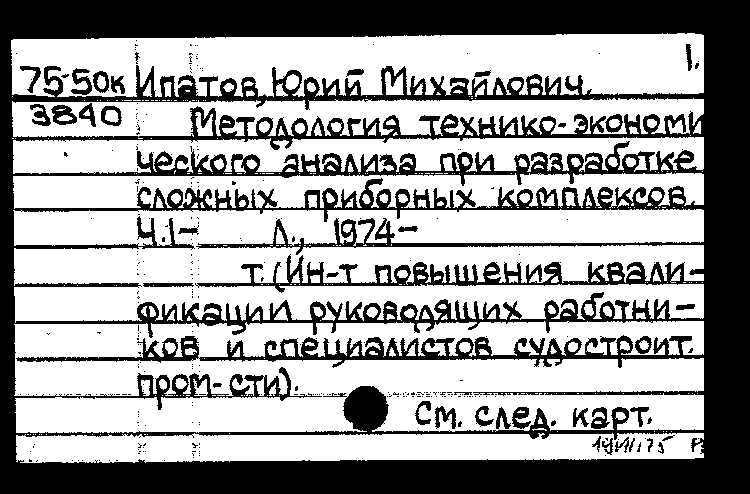 1.
75-50к Ипатов, Юрий Михайлович.
3840 Методология технико-экономи
ческого анализа при разработке
сложных приборных комплексов.
Ч.1– Л., 1974–
т. (Ин-т повышения квали-
фикации руководящих работни-
ков и специалистов судостроит.
пром-сти).
См. след. карт.